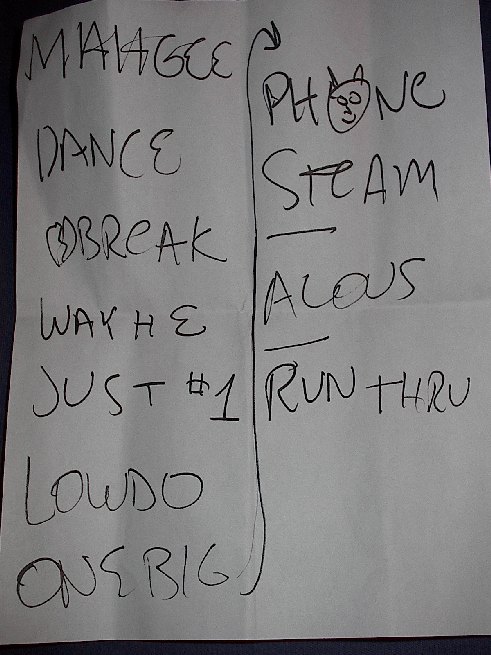 MAHGEE
DANCE
BREAK
WAYHE
JUST #1
LOWDO
ONE BIG
PHONE
STEAM
ALOUS
RUN THRU